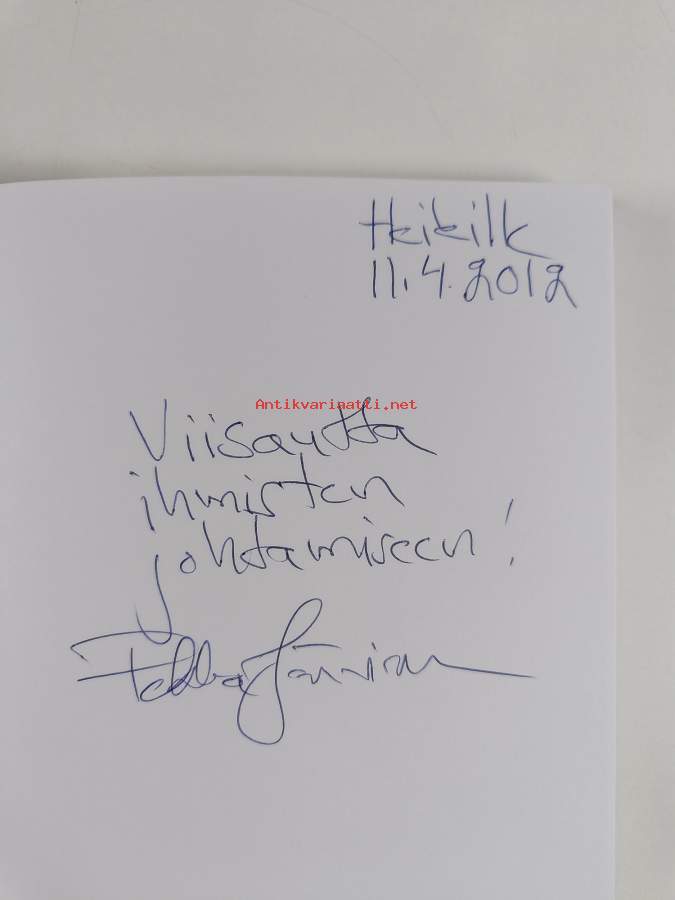 Heikille
11.4.2012
Antikvariaatti.net
Viisautta
ihmisten
johtamiseen!
Pekka Järvinen